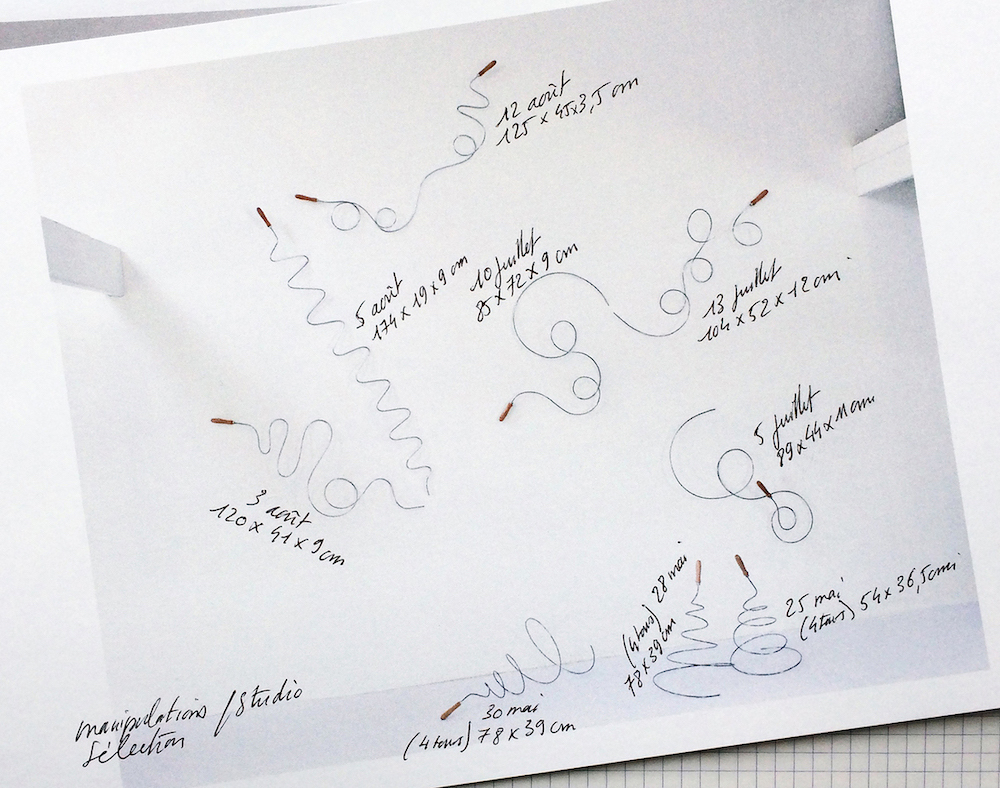 12 août
125 x 45x3,5 cm
5 août
174 x 19 x 9 cm
10 juillet
85 x 72 x 9 cm
13 juillet
104 x 52 x 12 cm
5 juillet
89 x 44 x 11 cm
3 août
120 x 41 x 9 cm
(4 tours) 28 mai
78 x 39 cm
25 mai
(4 tours) 54 x 36,5 cm
30 mai
(4 tours) 78 x 39 cm
manipulations / studio
sélection